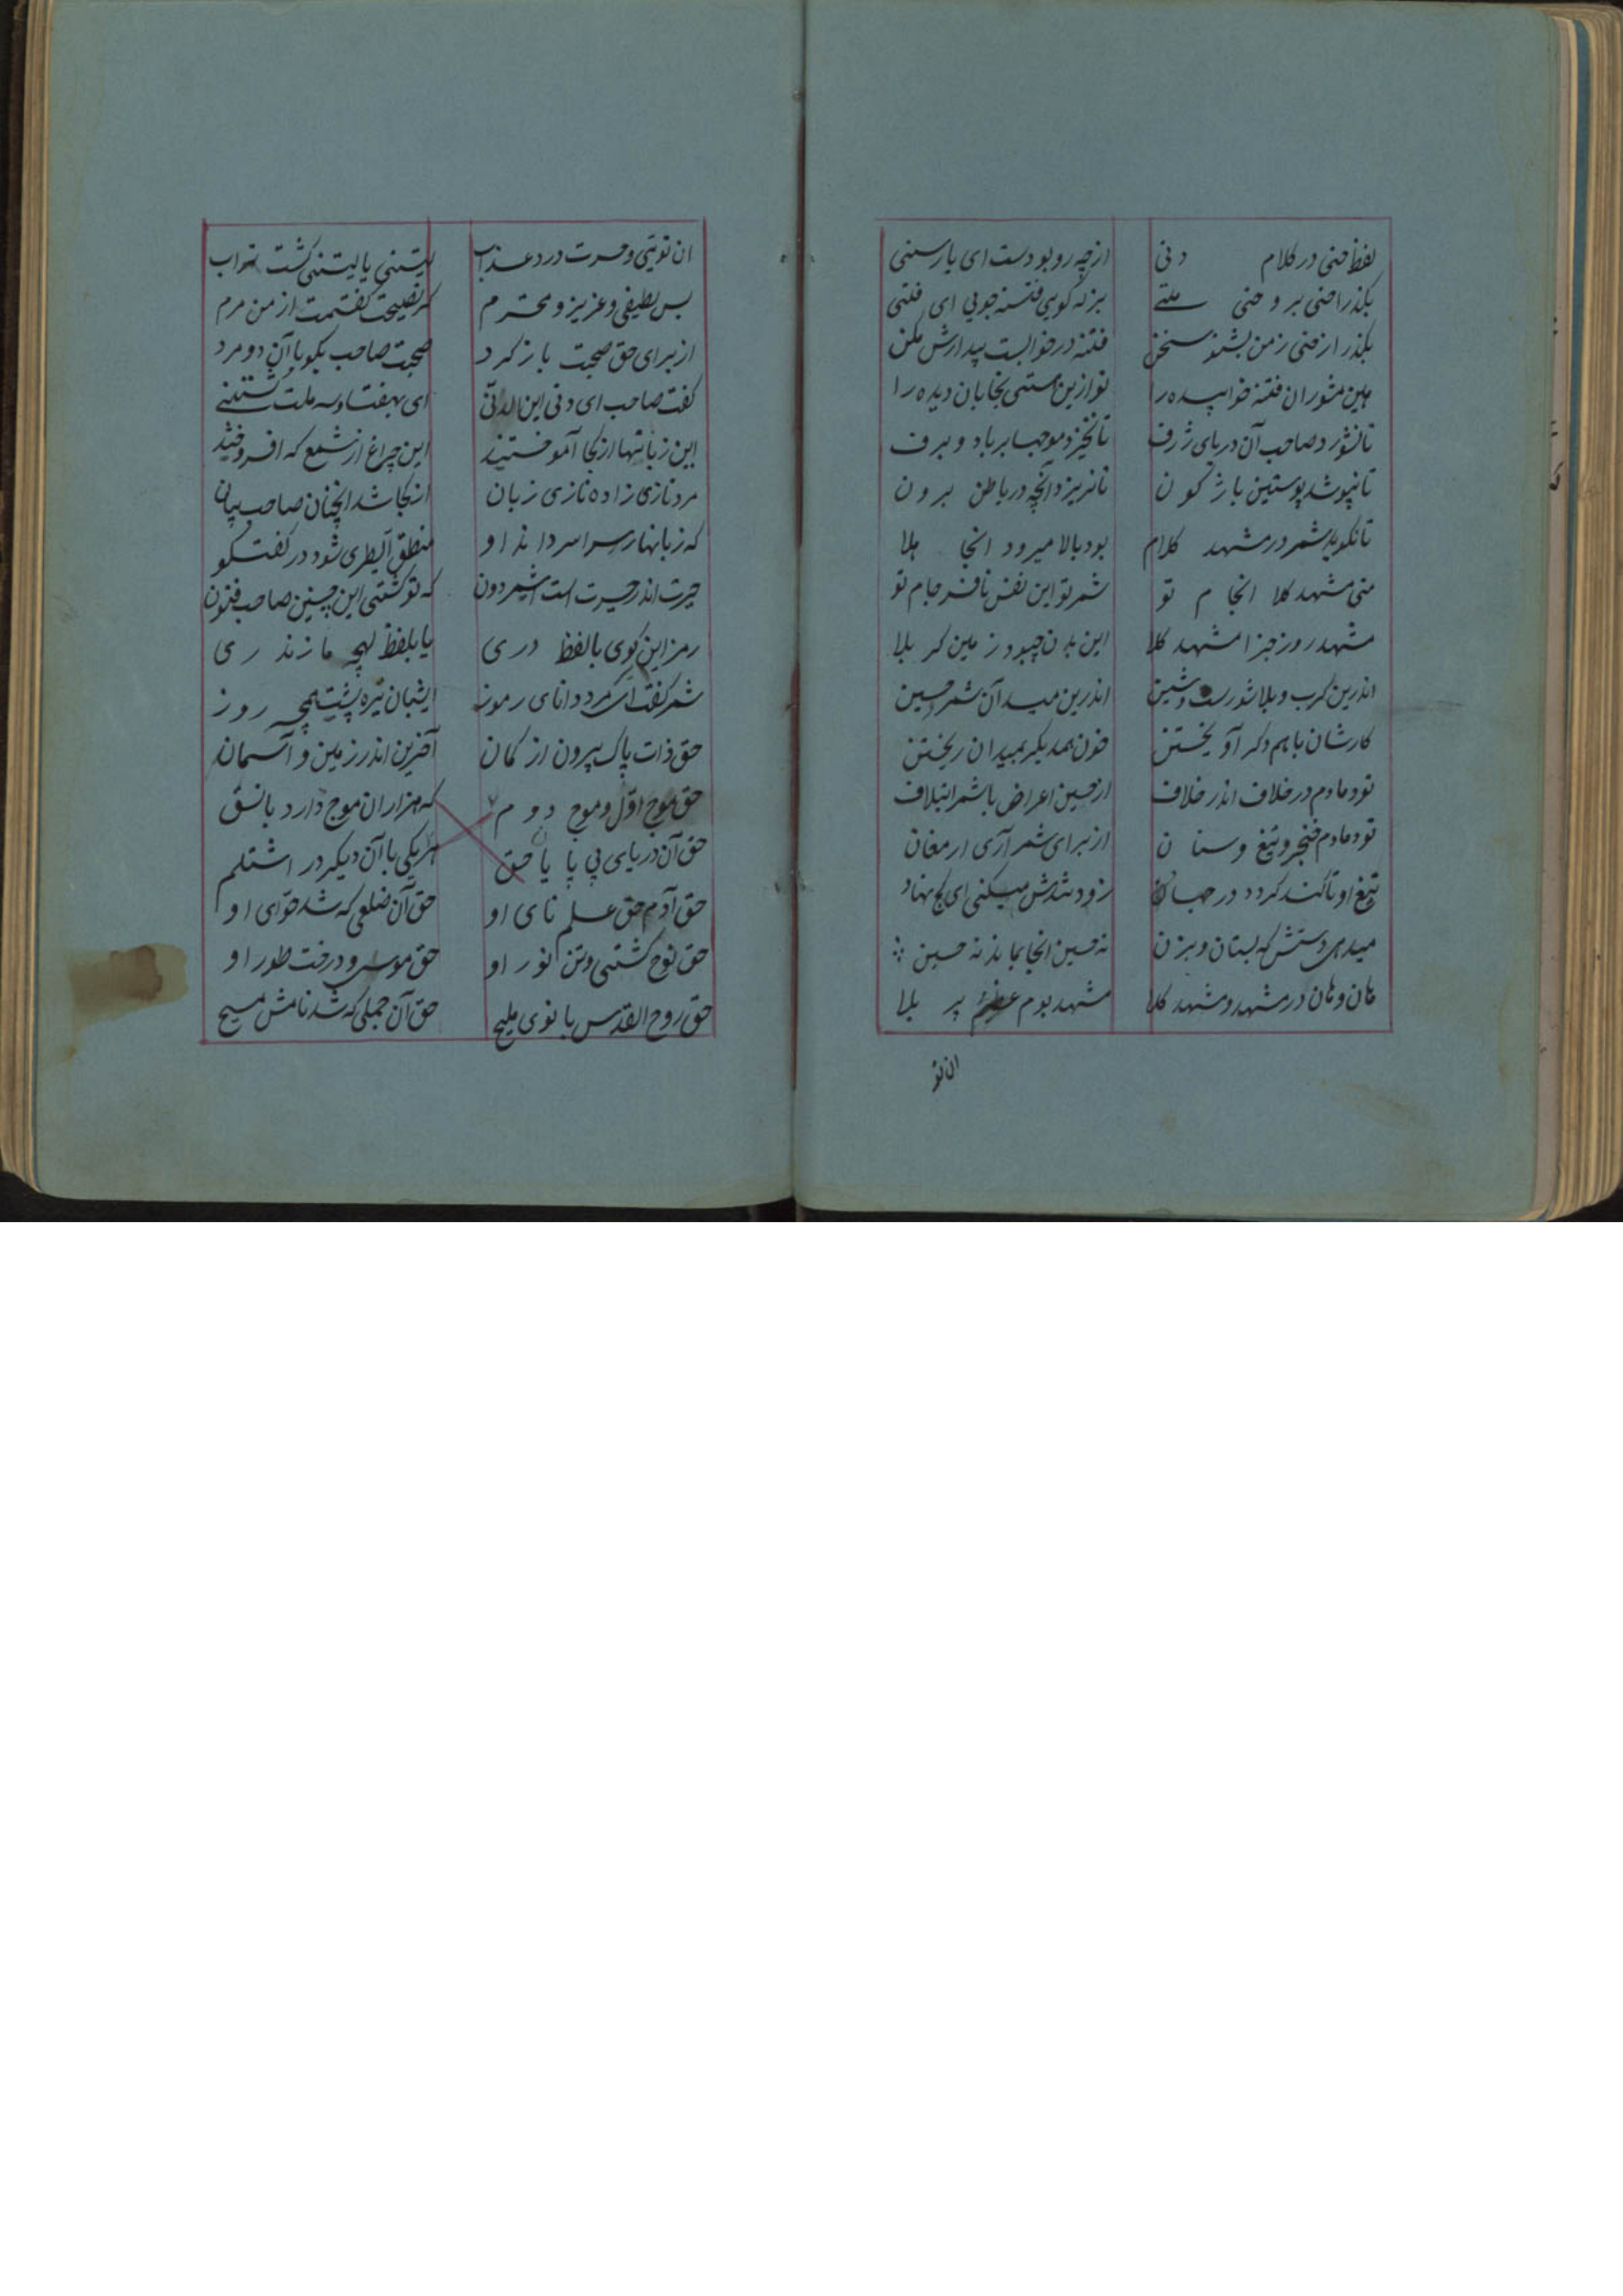 لفظ حنی در کلام دنی از چه رو بود است ای یار سنی
بگذر اخنی برو حنی ملتے هرزه کویی فتنه جویی ای فتی
بگذر از خنی زمن بشنو سخن فتنه در خوابست بیدارش مکن
هین مشوران فتنه خوابیده را تو ازین مستی بخابان دیده را
تا نشورد صاحب آن دریای ژرف تا نخیزد موجها بر باد و برف
تا نپوشد پوستین باژکون تا نریزد آنچه در باطن برون
تا نکوید شمر در مشهد کلام بود بالا میرود انجا هلا
منی مشهد کلا انجام تو شمر تو این نفس نافرجام تو
مشهد روز جزا مشهد کلا این بدن چبود زمین کربلا
اندرین کرب و بلا شورست و شین اندرین میدان شمر و حسین
کارشان با هم دکر آویختن خون همدیکر بمیدان ریختن
تو دمادم در خلاف اندر خلاف از حسین اعراض با شمر ائتلاف
تو دمادم خنجر و تیغ و سنان از برای شمر آری ارمغان
تیغ او تا کند کردد در جهاد زود تندش میکنی ای کج نهاد
میدهی دستش که بستان و بزن نه حسین انجا بماند نه حسن
هان و هان در مشهد و مشهد کلا مشهد بوم پر بلا
ان تو
ان تویتی و حسرت درد عذاب لیتنی یا لیتنی کنت تراب
بس لطیفی و عزیز و محترم که نصیحت کفتمت از من مرم
از برای حق صحبت باز کرد صحبت صاحب بکو با آن دو مرد
کفت صاحب ای دنی این الدنی ای بهفتاد و سه ملت
این زبانها از کجا آموختید این چراغ از شمع که افروختید
مرد تازی زاده تازی زبان از کجا شد انچنان صاحب بیان
که زبانها را سراسر داند او منطق الطیری شود در کفتکو
حیرت اندر حیرت است ای شمر دون که تو کشتی این چنین صاحب فنون
رمز این کوی با لفظ دری یا بلفظ لهجه مازندری
شمر کفت ای مرد دانای رموز ایشبان تیره پشت همچو روز
حق ذات پاک بیرون از کمان آخرین اندر زمین و آسمان
حق موج اول و موج دوم که هزاران موج دارد با نسق
حق آن دریای بی پایان حق هر یکی با آن دیکر در اشتلم
حق آدم حق علم نای او حق آن ضلعی که شد حوای او
حق نوح کشتی و تن نور او حق موسی و درخت طور او
حق روح القدس بانوی ملیح حق آن حملی که شد نامش مسیح